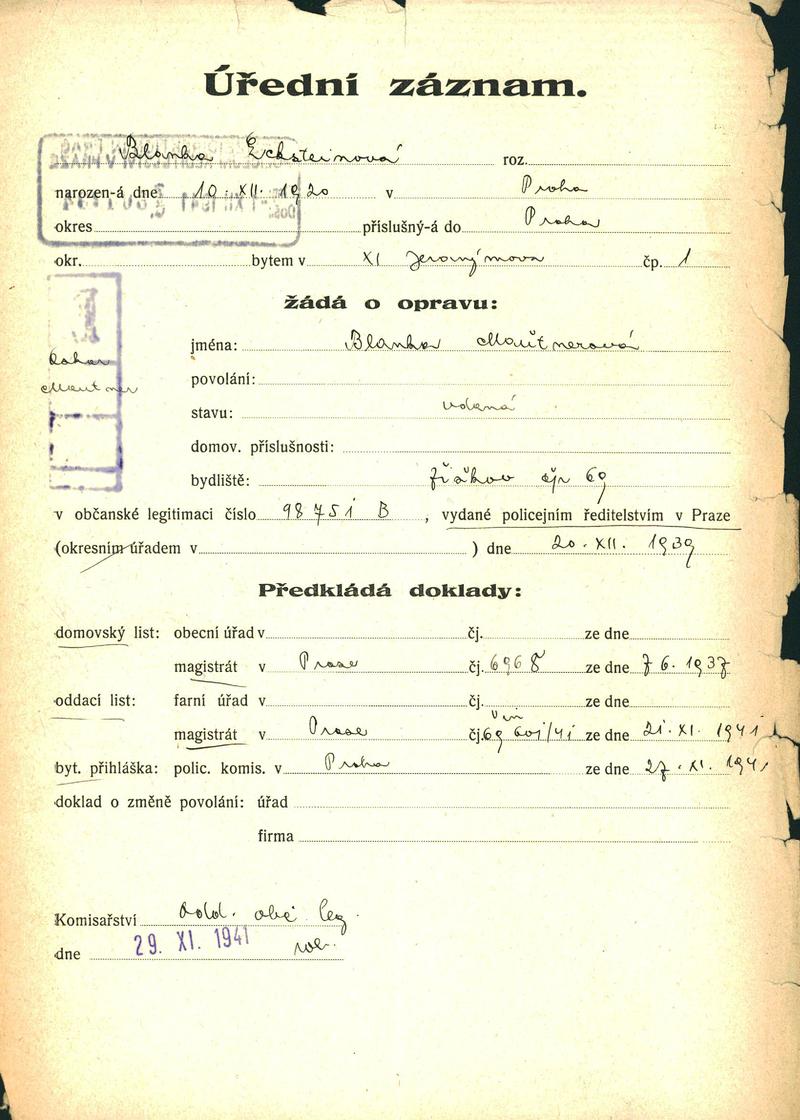 Úřední záznam.
Blanka Ecksteinová roz.
narozen-á dne 10. XII. 1920 v Praha
okres příslušný-á do Praha
okr. bytem v XI Jeronýmova čp. 1
žádá o opravu:
jména: Blanka Mautnerová
povolání:
Mautner
stavu: vdaná
domov. příslušnosti:
bydliště: Žižkov čp 69
v občanské legitimaci číslo 98751 B , vydané policejním ředitelstvím v Praze
(okresním úřadem v ) dne 20. XII. 1939
Předkládá doklady:
domovský list: obecní úřad v čj. ze dne
magistrát v Praze čj. 6968 ze dne 7 6. 1937
oddací list: farní úřad v čj. ze dne
magistrát v Praze čj. 69 601/41 ze dne 21. XI. 1941
byt. přihláška: polic. komis. v Praha ze dne 27. XI. 1941
doklad o změně povolání: úřad
firma
Komisařství odd. obč leg.
dne 29. XI. 1941